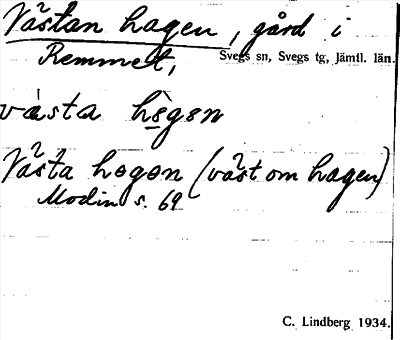 Västan hagen, gård i
Remmet, Svegs sn, Svegs tg, Jämtl. län.
västa hègen
Västa hogon (väst om hagen)
Modin s. 69
C. Lindberg 1934.